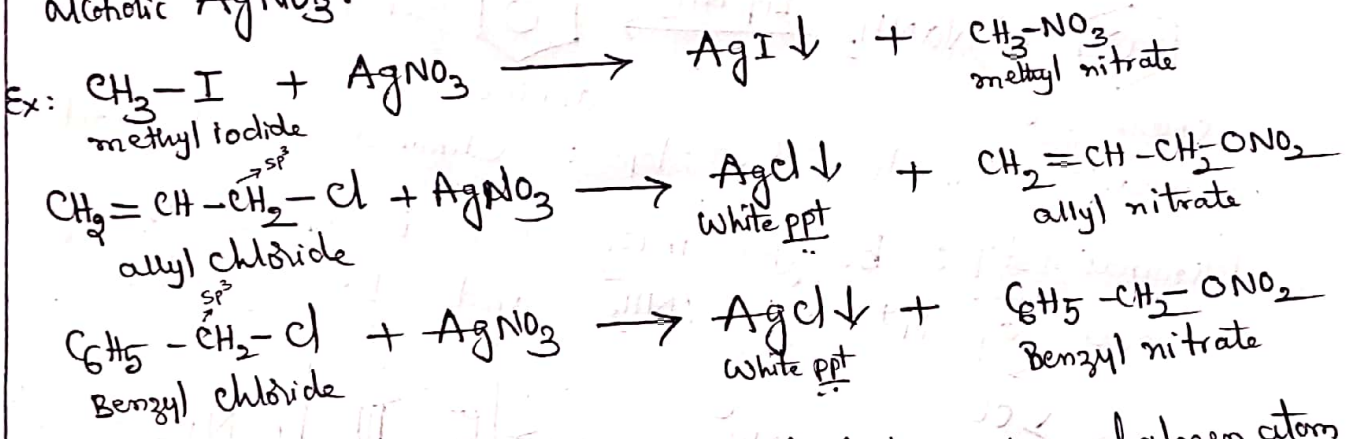 alcoholic AgNO₃.
Ex: CH₃-I + AgNO₃ ⟶ AgI↓ + CH₃-NO₃
methyl iodide methyl nitrate
sp³
CH₂=CH-CH₂-Cl + AgNO₃ ⟶ AgCl↓ + CH₂=CH-CH₂-ONO₂
allyl chloride White ppt allyl nitrate
sp³
C₆H₅-CH₂-Cl + AgNO₃ ⟶ AgCl↓ + C₆H₅-CH₂-ONO₂
Benzyl chloride White ppt Benzyl nitrate
halogen atom